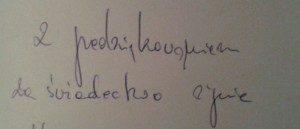 Z podziękowaniem
za świadectwo życia